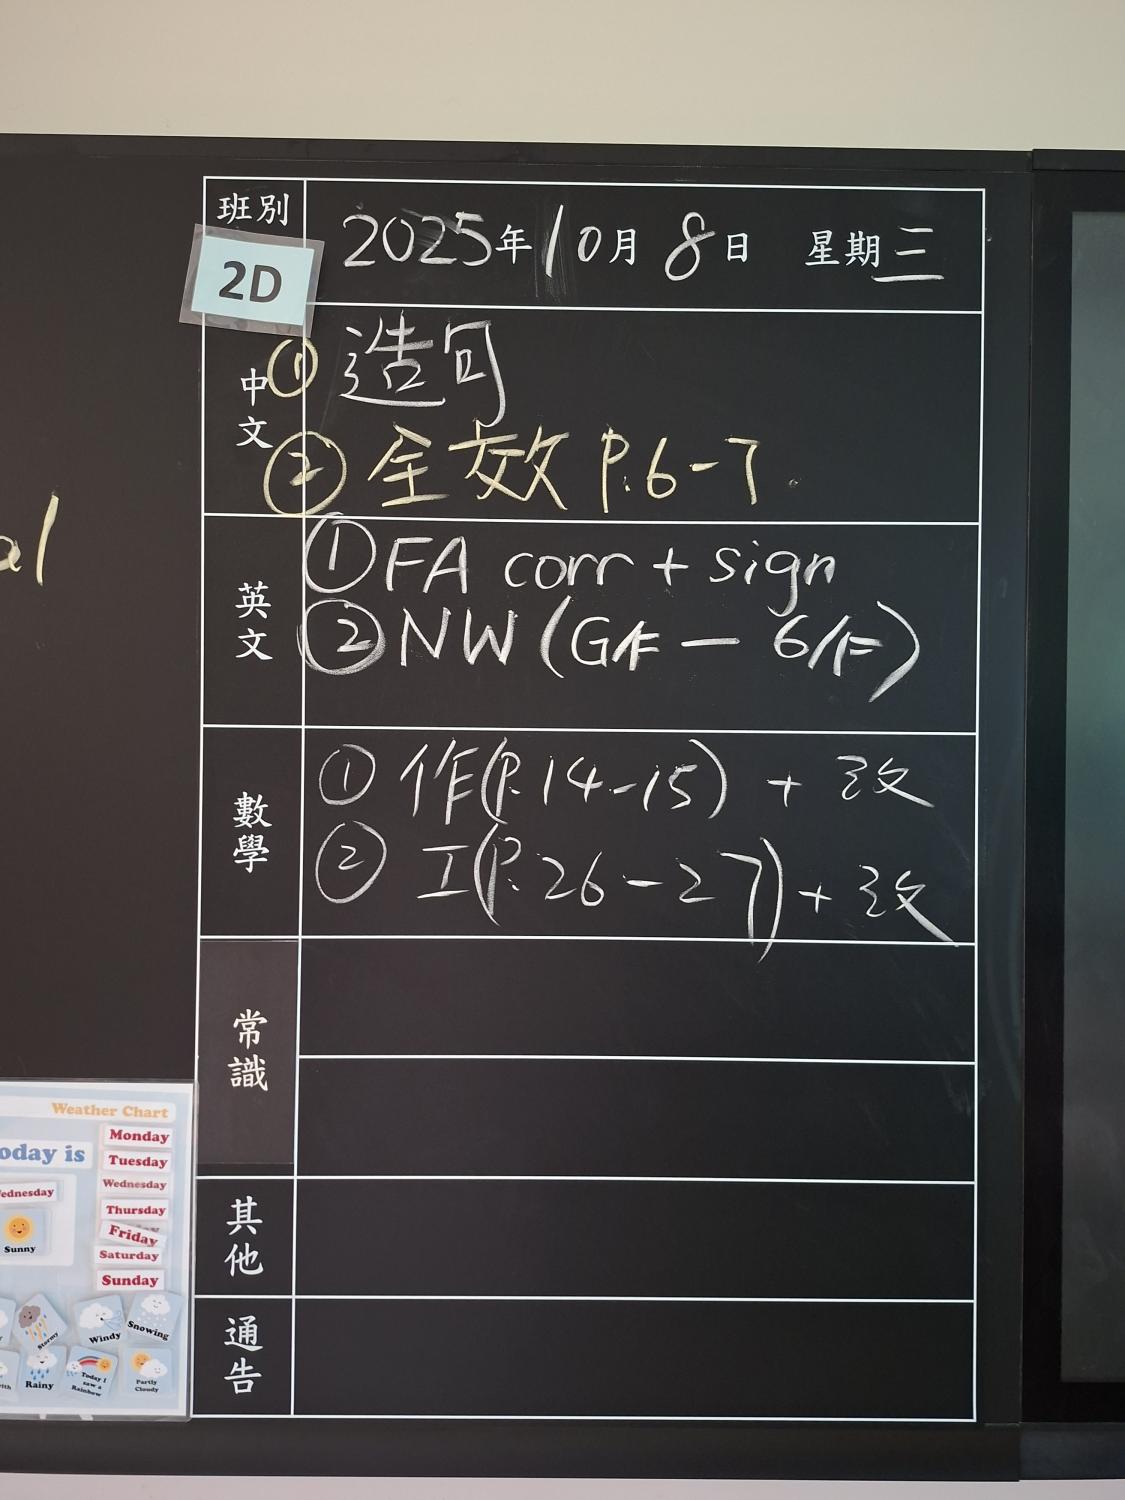 班別
2D
2025年10月8日 星期三
中文
① 造句
② 全效 P.6-7.
英文
① FA corr + sign
② NW (G/F — 6/F)
數學
① 作(P.14-15) + 改
② 工(P.26-27) + 改
常識
其他
通告
al
Weather Chart
oday is
Monday
Tuesday
Wednesday
Thursday
Friday
Saturday
Sunday
ednesday
Sunny
Stormy
Windy
Snowing
Rainy
Today I
saw a
Rainbow
Partly
Cloudy